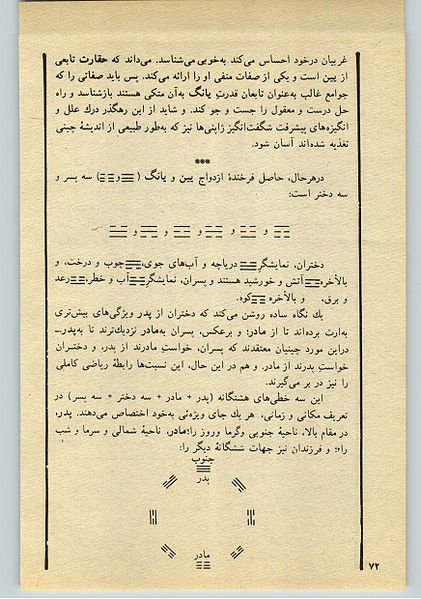 غربیان درخود احساس می‌کند به‌خوبی می‌شناسد. می‌داند که حقارت تابعی
از یین است و یکی از صفات منفی او را ارائه می‌کند. پس باید صفاتی را که
جوامع غالب به‌عنوان تابعان قدرتِ یانگ به‌آن متکی هستند بازشناسد و راه
حل درست و معقول را جست و جو کند. و شاید از این رهگذر درك علل و
انگیزه‌های پیشرفت شگفت‌انگیز ژاپنی‌ها نیز که به‌طور طبیعی از اندیشهٔ چینی
تغذیه شده‌اند آسان شود.
***
درهرحال، حاصل فرخندهٔ ازدواج یین و یانگ (☰و☷) سه پسر و
سه دختر است:
و و و و و
دختران، نمایشگر ☱ دریاچه و آب‌های جوی، ☴ چوب و درخت، و
بالأخره ☲ آتش و خورشید هستند و پسران، نمایشگر ☵ آب و خطر، ☳ رعد
و برق، و بالأخره ☶ کوه.
یك نگاه ساده روشن می‌کند که دختران از پدر ویژگی‌های بیش‌تری
به‌ارث برده‌اند تا از مادر؛ و برعکس، پسران به‌مادر نزدیك‌ترند تا به‌پدر.ـ
دراین مورد چینیان معتقدند که پسران، خواستِ مادرند از پدر، و دختران
خواستِ پدرند از مادر. و هم در این حال، این نسبت‌ها رابطهٔ ریاضی کاملی
را نیز در بر می‌گیرند.
این سه خطی‌های هشتگانه (پدر + مادر + سه دختر + سه پسر) در
تعریف مکانی و زمانی، هر یك جای ویژه‌ئی به‌خود اختصاص می‌دهند. پدر،
در مقام بالا، ناحیهٔ جنوبی وگرما وروز را؛ مادر، ناحیهٔ شمالی و سرما و شب
را؛ و فرزندان نیز جهات ششگانهٔ دیگر را:
جنوب
پدر
مادر
۷۲